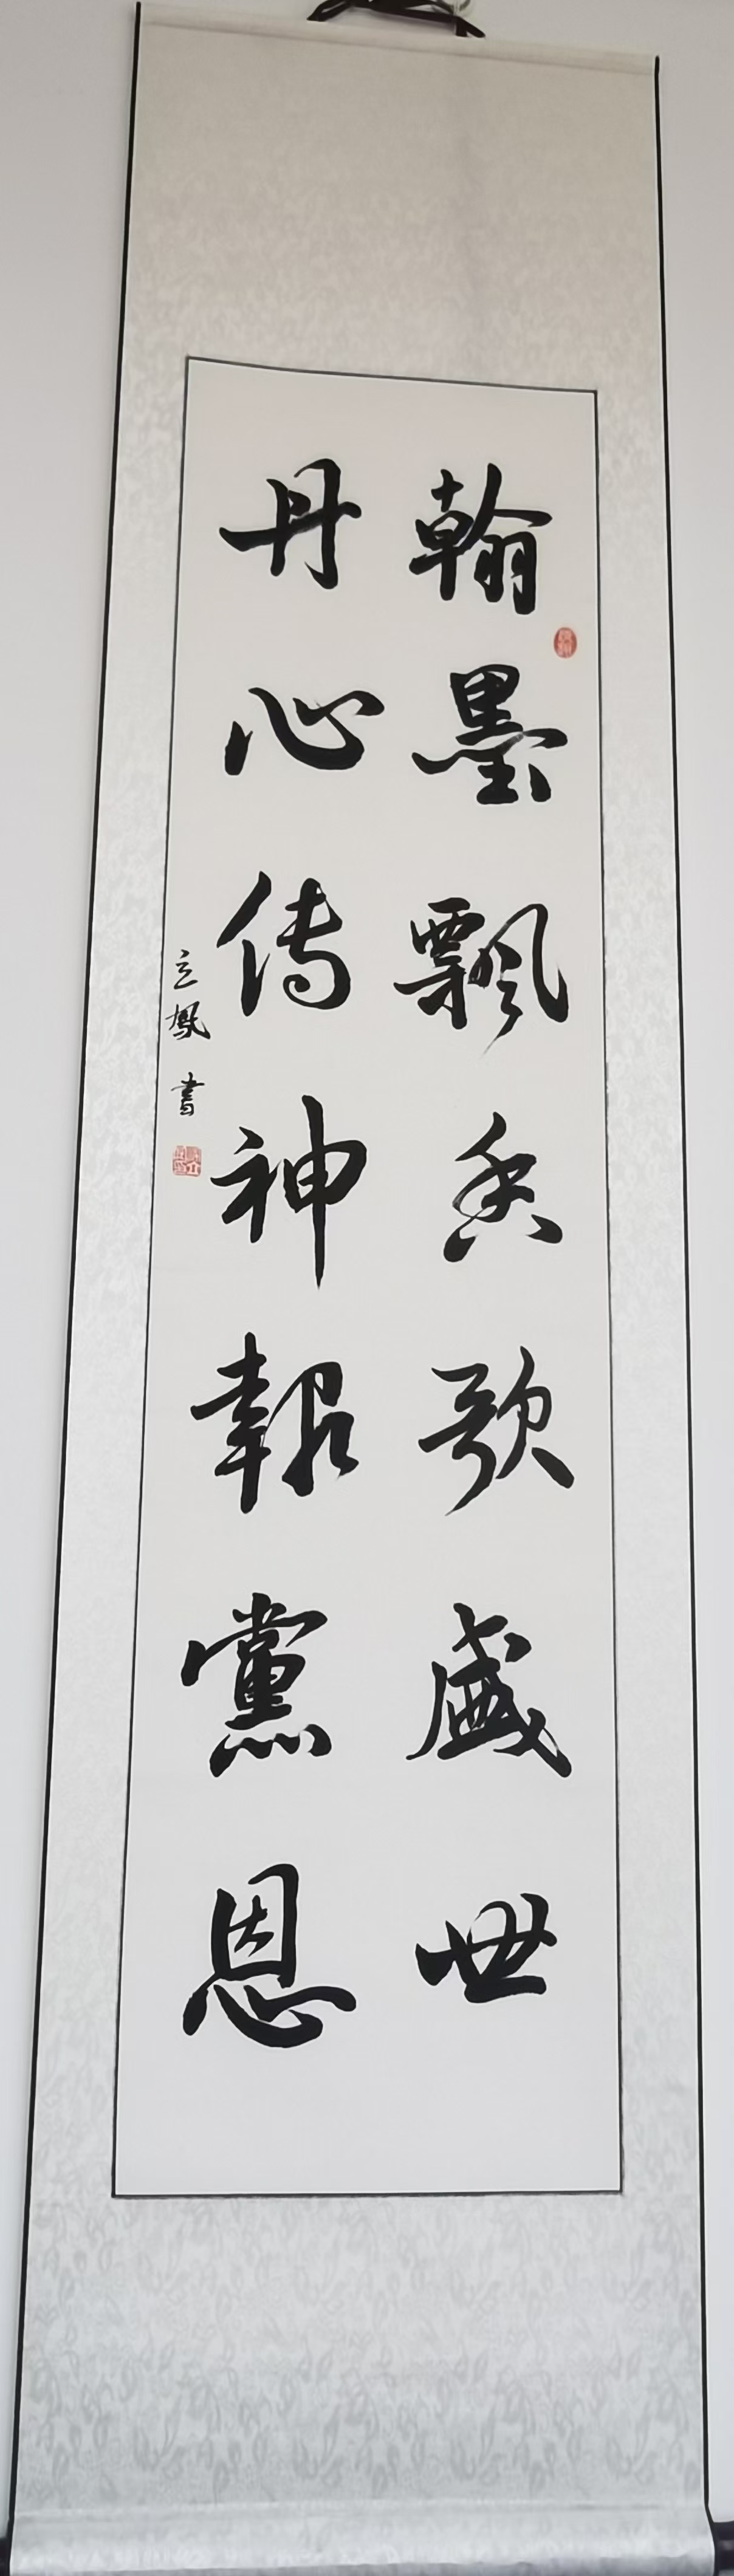 翰墨飘香歌盛世
丹心传神報黨恩
立鳳書